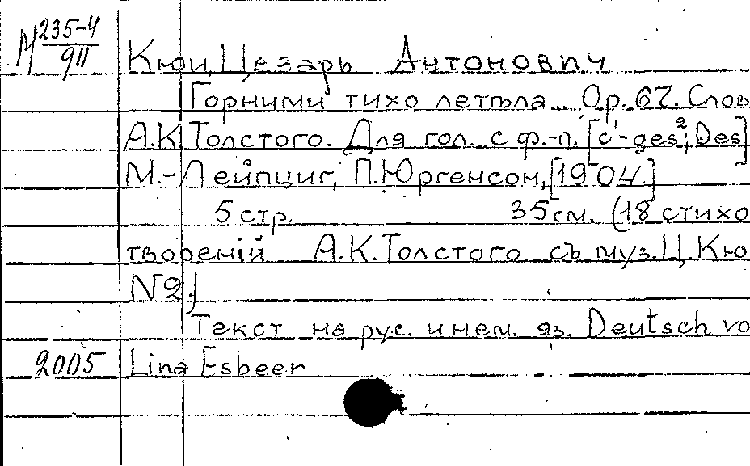 М 235-4/911
Кюи, Цезарь Антонович
Горними тихо летѣла Ор. 67. Слов
А.К. Толстого. Для гол. с ф.-п. [c'-ges², Des]
М.-Лейпциг, П. Юргенсон, [1904]
5 стр. 35 см. (18 стихо
творенiй А.К. Толстого съ муз. Ц. Кю
№2.)
Текст на рус. и нем. яз. Deutsch vo
2005 Lina Esbeer